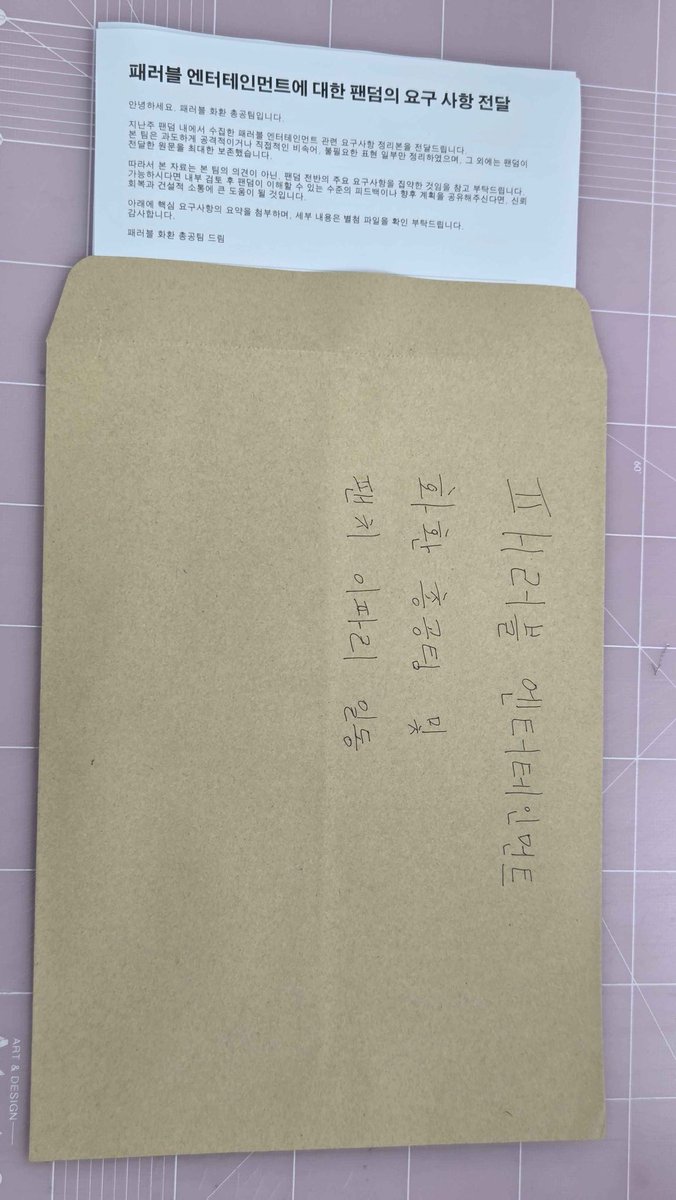 패러블 엔터테인먼트에 대한 팬덤의 요구 사항 전달
안녕하세요. 패러블 화환 총공팀입니다.
지난주 팬덤 내에서 수집한 패러블 엔터테인먼트 관련 요구사항 정리본을 전달드립니다.
본 팀은 과도하게 공격적이거나 직접적인 비속어, 불필요한 표현 일부만 정리하였으며, 그 외에는 팬덤이
전달한 원문을 최대한 보존했습니다.
따라서 본 자료는 본 팀의 의견이 아닌, 팬덤 전반의 주요 요구사항을 집약한 것임을 참고 부탁드립니다.
가능하시다면 내부 검토 후 팬덤이 이해할 수 있는 수준의 피드백이나 향후 계획을 공유해주신다면, 신뢰
회복과 건설적 소통에 큰 도움이 될 것입니다.
아래에 핵심 요구사항의 요약을 첨부하며, 세부 내용은 별첨 파일을 확인 부탁드립니다.
감사합니다.
패러블 화환 총공팀 드림
패러블 엔터테인먼트
화환 총공팀 및
팬치 이파리 일동
60°
ART & DESIGN